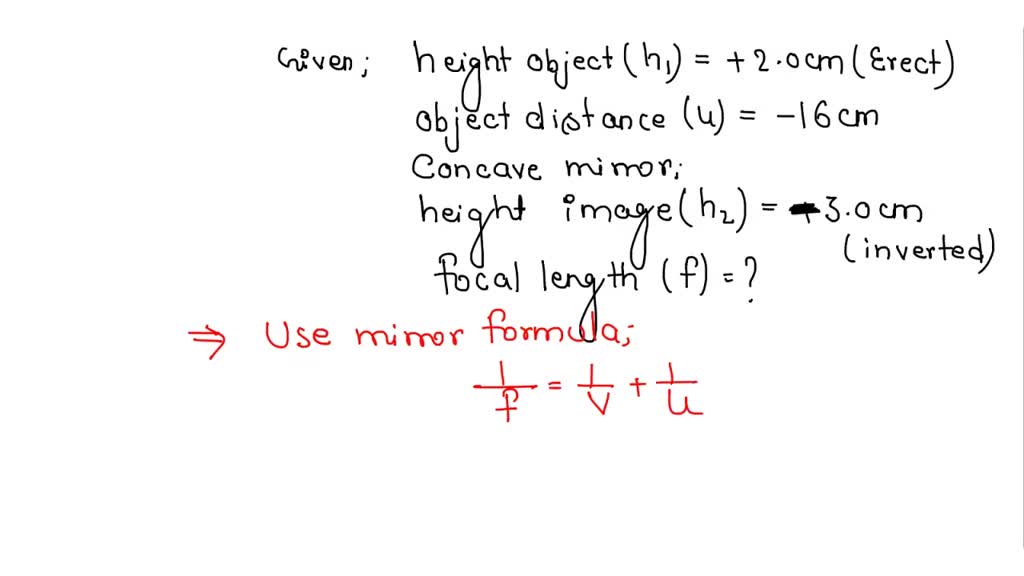 Given; height object (h₁) = +2.0cm (Erect)
object distance (u) = -16cm
Concave mirror;
height image (h₂) = -3.0cm
(inverted)
focal length (f) = ?
⇒ Use mirror formula;
1/f = 1/v + 1/u